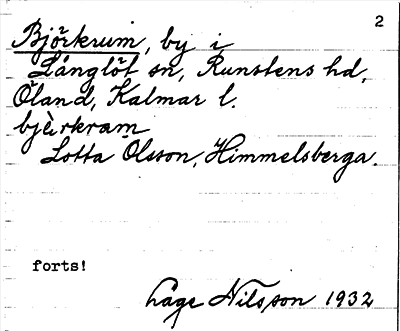 2
Björkrum, by i
Långlöt sn, Runstens hd,
Öland, Kalmar l.
bjèrkram
Lotta Olsson, Himmelsberga.
forts!
Åge Nilsson 1932